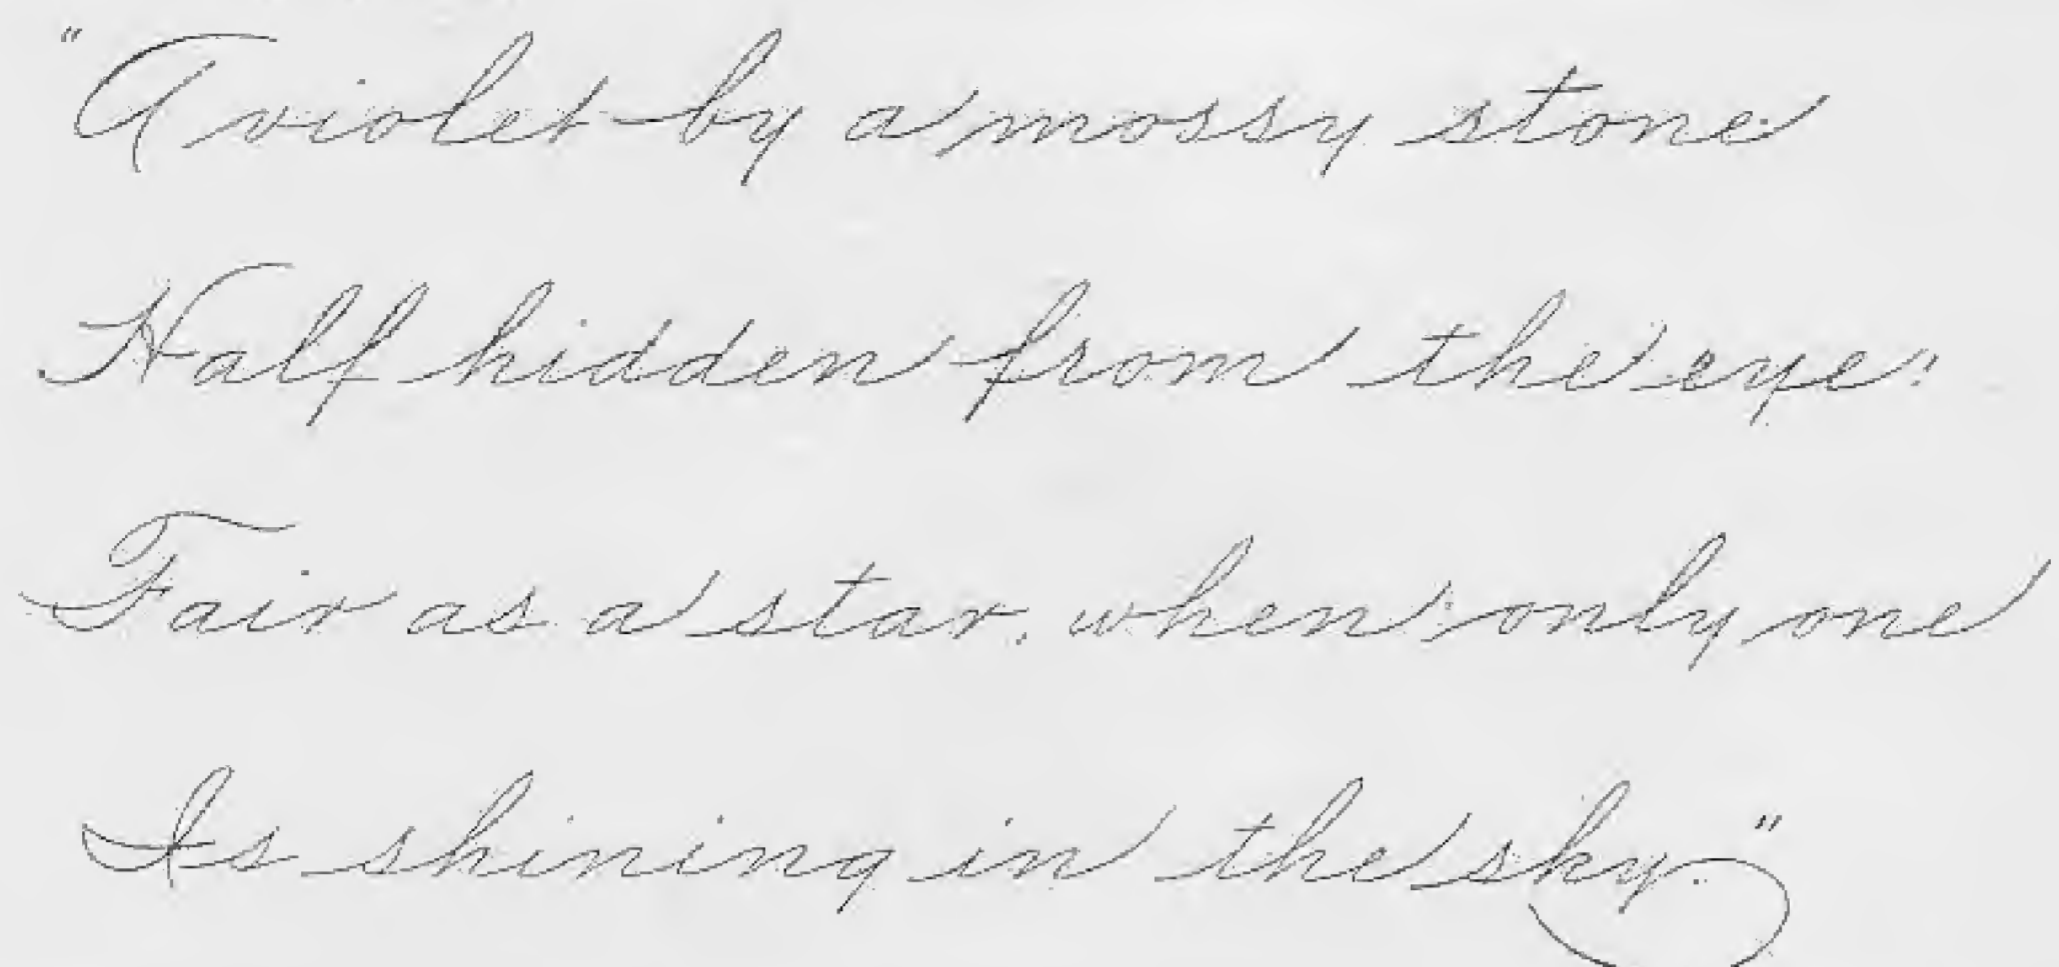 "A violet by a mossy stone
Half hidden from the eye!
Fair as a star, when only one
Is shining in the sky."